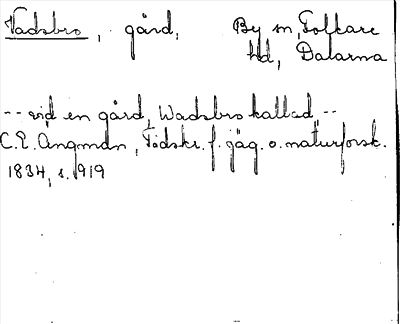 Vadsbro, gård, By sn, Folkare
hd, Dalarna
-- vid en gård, Wadsbro kallad --
C. E. Angman, Tidskr. f. jäg. o. naturforsk.
1834, s. 919